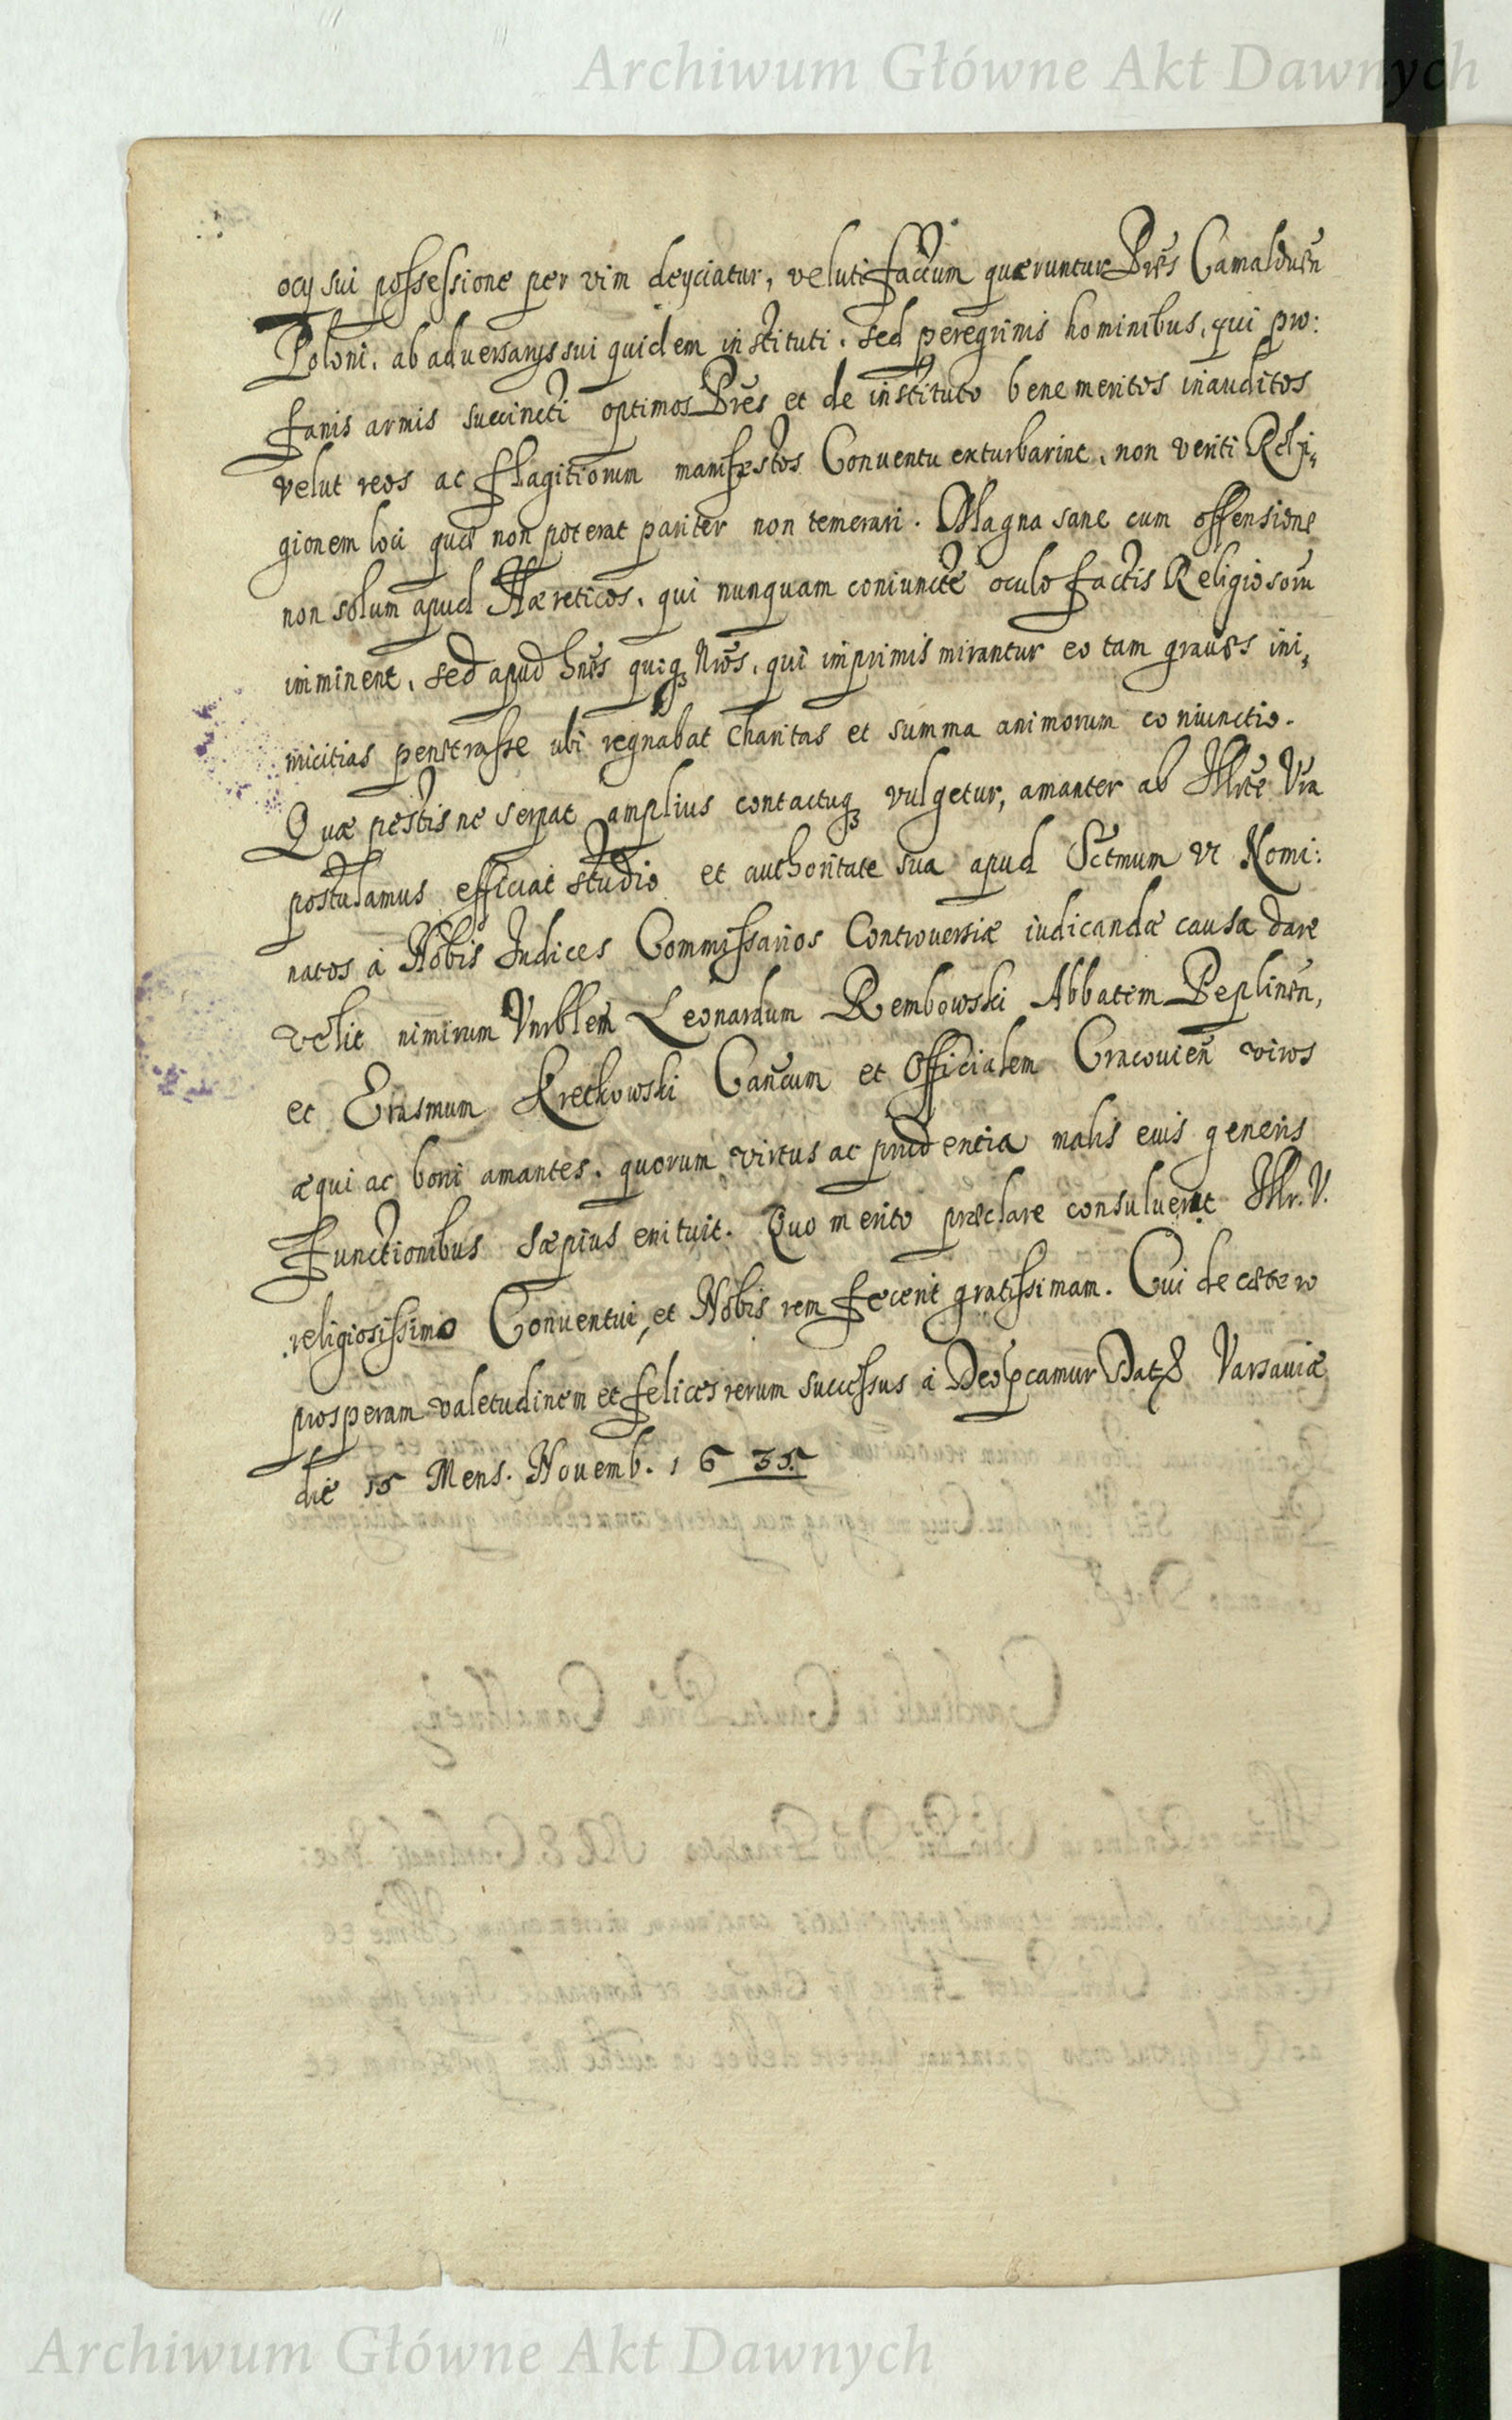 Archiwum Główne Akt Dawnych
ocij sui possessione per vim deijciatur, veluti factum quæruntur Prẽs Camalduẽn
Poloni, ab adversarijs sui quidem instituti, sed peregrinis hominibus, qui pro:
fanis armis succincti optimos Prẽs et de instituto bene meritos inauditos
velut reos ac flagitiorum manifestos Conventu exturbarint, non veriti Reli„
gionem loci quæ non poterat pariter non temerari. Magna sane cum offensione
non solum apud Hæreticos, qui nunquam coniuncte oculo factis Religiosorũ
imminent, sed apud hnẽs quiq3 Nrõs, qui imprimis mirantur eo tam graves ini„
micitias penetrasse ubi regnabat Charitas et summa animorum coniunctio.
Quæ pestis ne serpat amplius contactuq3 vulgetur, amanter ab Illrtẽ Vrã
postulamus efficiat studio et authoritate sua apud Sctmum vt Nomi:
natos à Nobis Iudices Commissarios Controversiæ iudicandæ causa dare
velit nimirum Vnrblem Leonardum Rembowski Abbatem Peplinẽn,
et Erasmum Kretkowski Cancum et Officialem Cracouiẽn viros
æqui ac boni amantes, quorum virtus ac prudentia malis euis generis
functionibus sæpius enituit. Quo merito præclare consuluerit Illr. V.
religiosissimo Conuentui, et Nobis rem fecerit gratissimam. Cui de cætero
prosperam valetudinem et felices rerum successus à Deo p̃camur Dat3 Varsauiæ
die 15 Mens. Nouemb. 1635.
Archiwum Główne Akt Dawnych